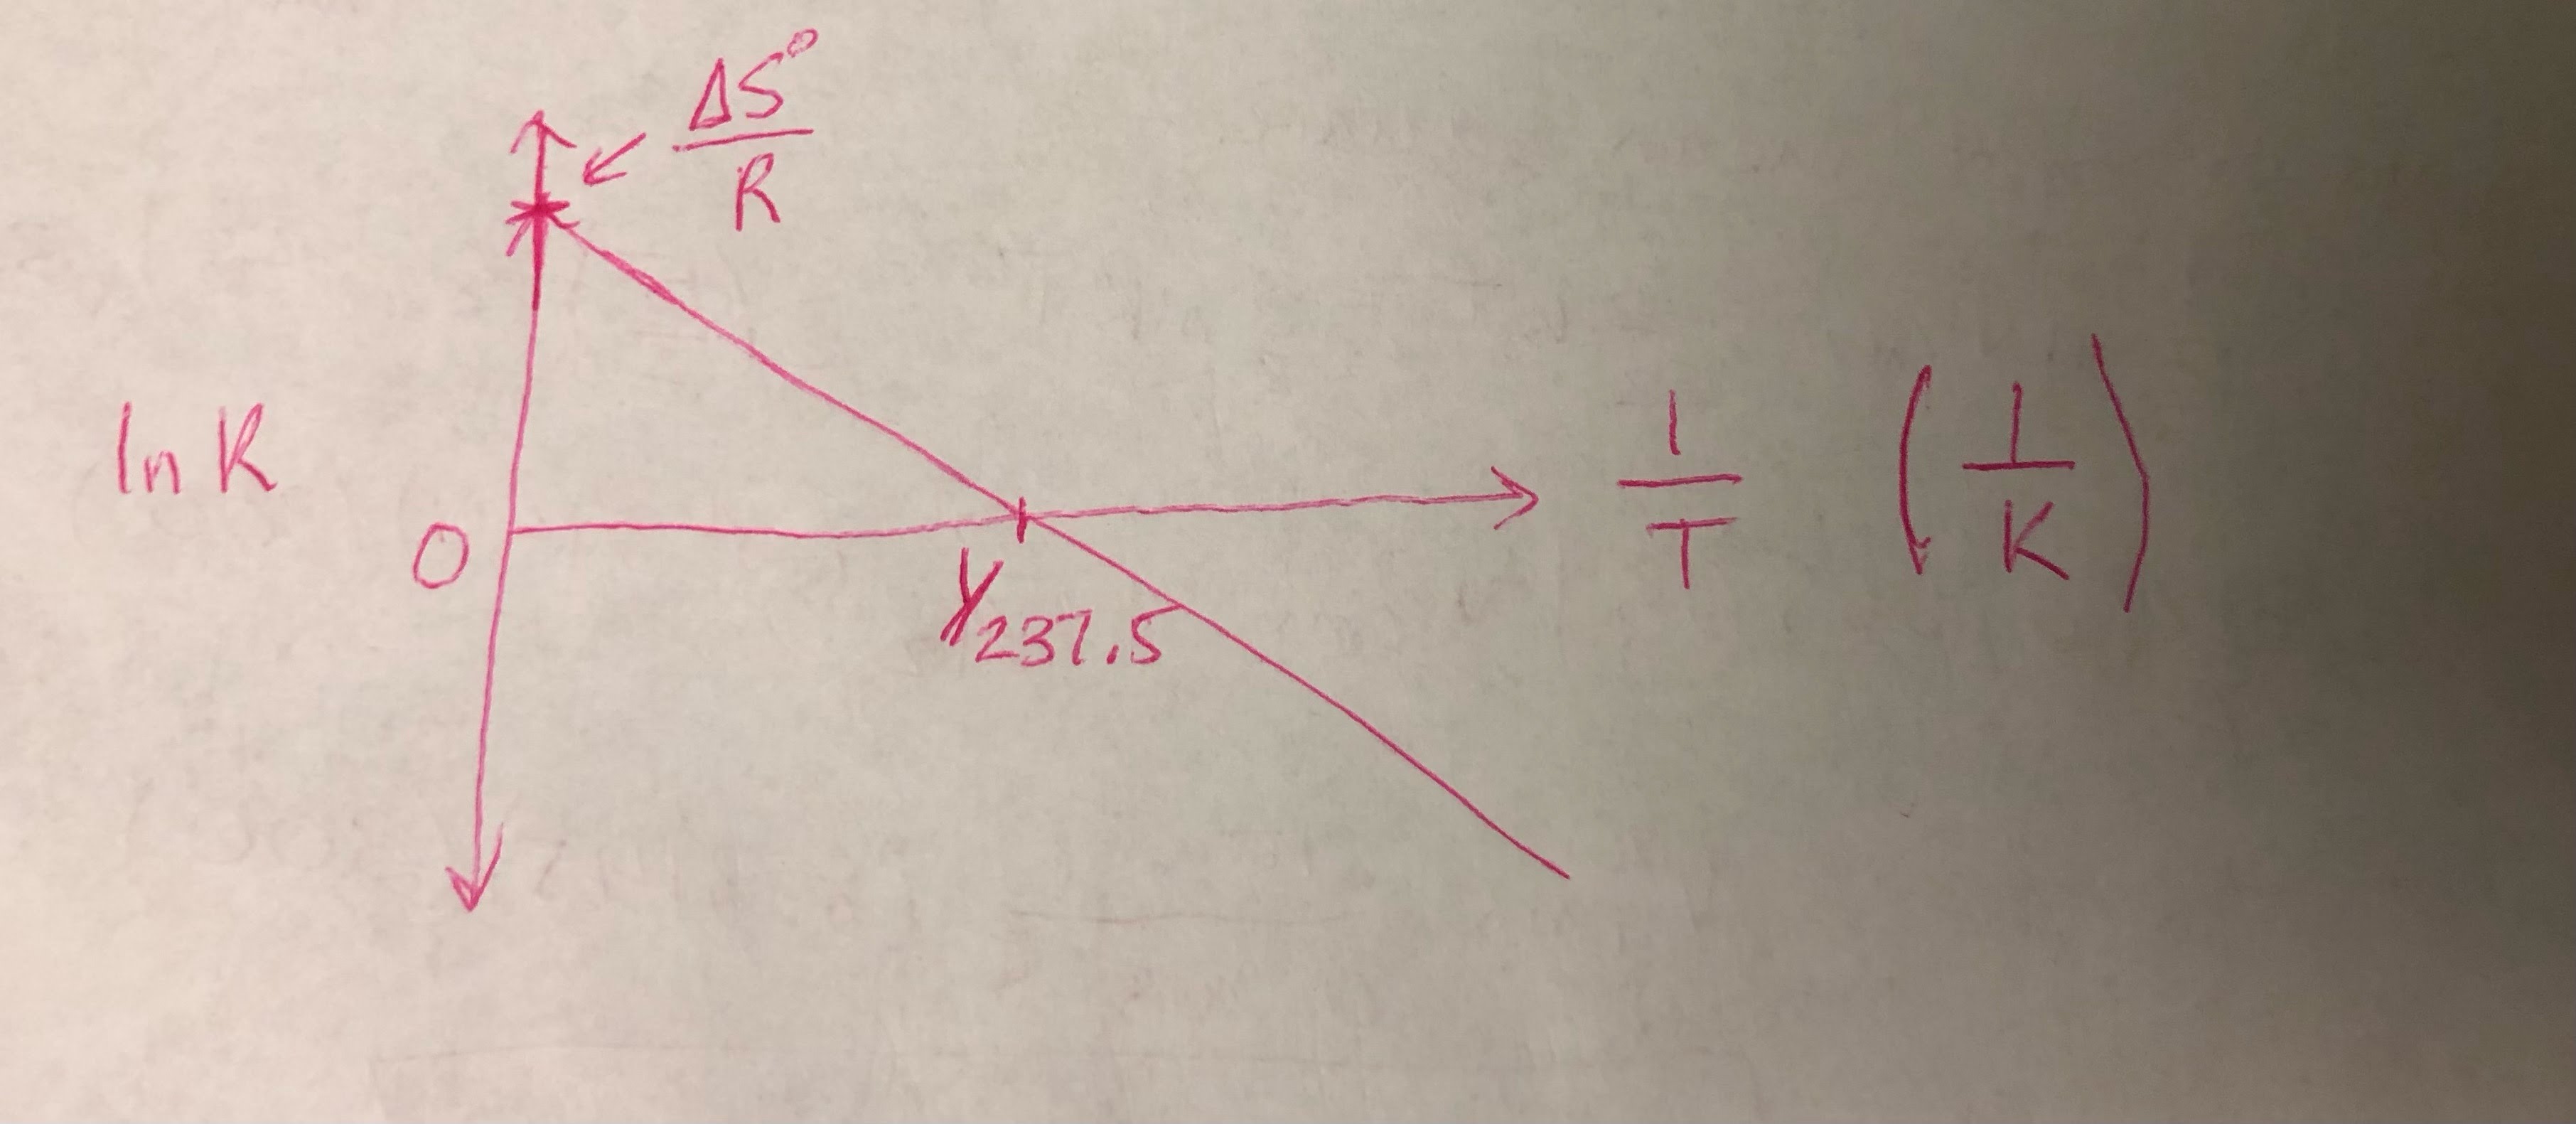 ΔS°
R
ln K
0
1/237.5
1
T
(1
K)